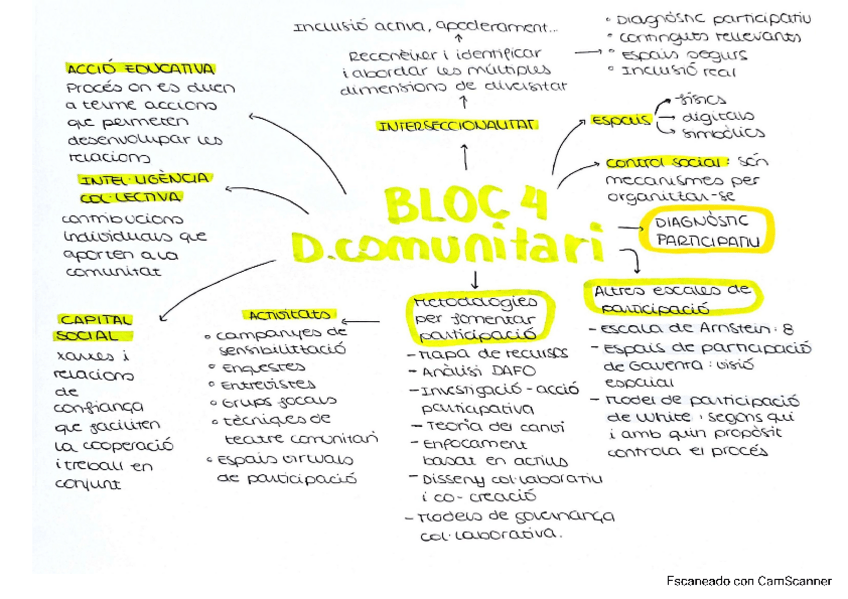 Inclusió activa, apoderament...
Reconèixer i identificar
i abordar les múltiples
dimensions de diversitat
° Diagnòstic participatiu
° continguts rellevants
° Espais segurs
° Inclusió real
INTERSECCIONALITAT
ACCIÓ EDUCATIVA
Procés on es duen
a terme accions
que permeten
desenvolupar les
relacions
ESPAIS
físics
digitals
simbòlics
control social: són
mecanismes per
organitzar-se
INTEL·LIGÈNCIA
COL·LECTIVA
contribucions
individuals que
aporten a la
comunitat
BLOC 4
D.comunitari
DIAGNÒSTIC
PARTICIPATIU
CAPITAL
SOCIAL
xarxes i
relacions
de
confiança
que faciliten
la cooperació
i treball en
conjunt
Activitats
° campanyes de
sensibilització
° Enquestes
° Entrevistes
° Grups focals
° tècniques de
teatre comunitari
° Espais virtuals
de participació
Metodologies
per fomentar
participació
- Mapa de recursos
- Anàlisi DAFO
- Investigació-acció
participativa
- Teoria del canvi
- Enfocament
basat en actius
- Disseny col·laboratiu
i co-creació
- Models de governança
col·laborativa.
Altres escales de
participació
- Escala de Arnstein: 8
- Espais de participació
de Gaventa: visió
espacial
- Model de participació
de White: segons qui
i amb quin propòsit
controla el procés
Escaneado con CamScanner